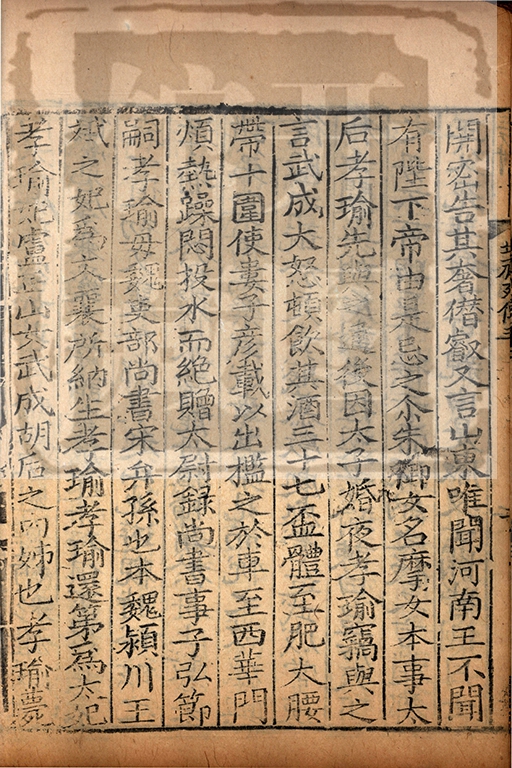 開密告其奢僣叡又言山東唯聞河南王不聞
有陛下帝由是忌之尒朱御女名摩女本事太
后孝瑜先與之通後因太子婚夜孝瑜竊與之
言武成大怒頓飲其酒三十七盃體至肥大腰
帶十圍使婁子彦載以出檻之於車至西華門
煩熱躁悶投水而絶贈太尉録尚書事子弘節
嗣孝瑜母魏吏部尚書宋弁孫也本魏潁川王
斌之妃爲文襄所納生孝瑜孝瑜還第爲太妃
孝瑜妃盧正山女武成胡后之内姊也孝瑜薨